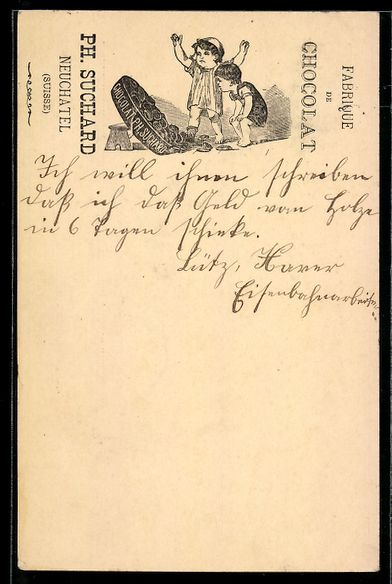 FABRIQUE
DE
CHOCOLAT
CHOCOLAT PH. SUCHARD
PH. SUCHARD
NEUCHATEL
(SUISSE)
Ich will ihnen schreiben
daß ich daß Geld vom Holze
in 6 Tagen schicke.
Lütz, Xaver
Eisenbahnarbeiter